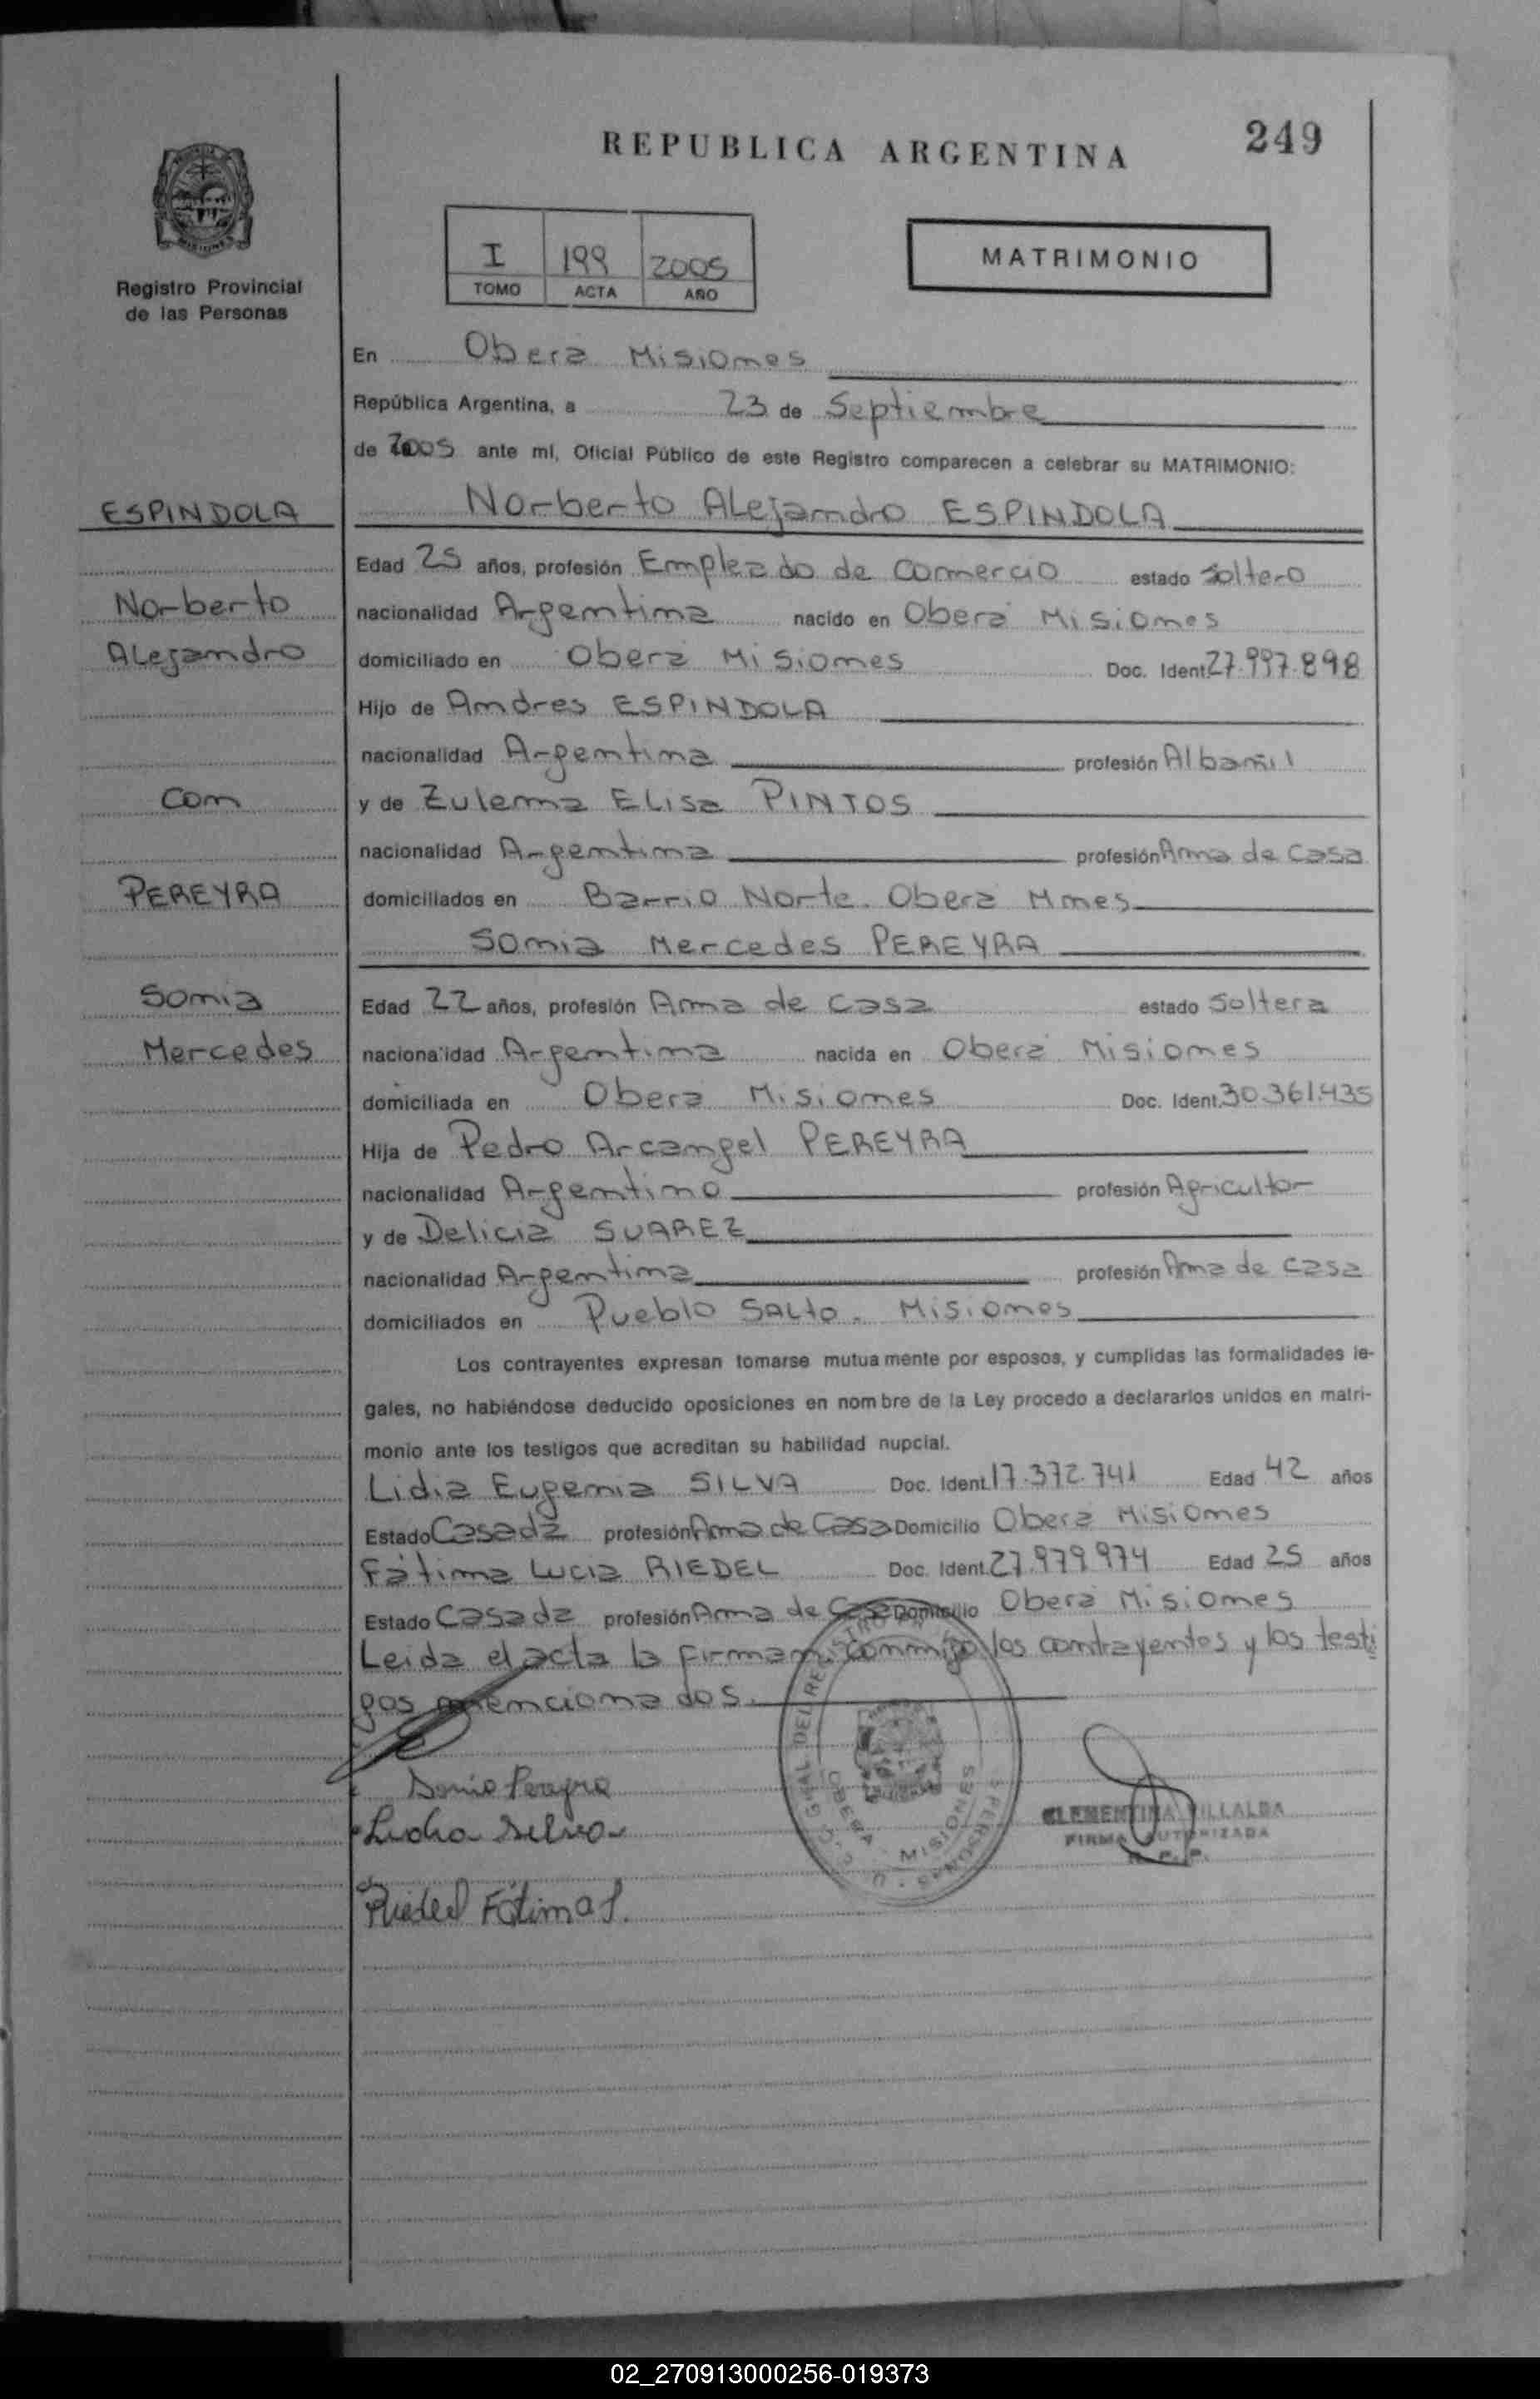 REPUBLICA ARGENTINA
249
Registro Provincial
de las Personas
I 199 2005
TOMO ACTA AÑO
MATRIMONIO
En Oberá Misiones
República Argentina, a 23 de Septiembre
de 2005 ante mí, Oficial Público de este Registro comparecen a celebrar su MATRIMONIO:
ESPINDOLA
Norberto Alejandro ESPINDOLA
Edad 25 años, profesión Empleado de Comercio estado Soltero
Norberto
nacionalidad Argentina nacido en Oberá Misiones
Alejandro
domiciliado en Oberá Misiones Doc. Ident. 27.997.898
Hijo de Andres ESPINDOLA
nacionalidad Argentina profesión Albañil
con
y de Zulema Elisa PINTOS
nacionalidad Argentina profesión Ama de Casa
PEREYRA
domiciliados en Barrio Norte. Oberá Mnes
Sonia Mercedes PEREYRA
Sonia
Edad 22 años, profesión Ama de Casa estado Soltera
Mercedes
nacionalidad Argentina nacida en Oberá Misiones
domiciliada en Oberá Misiones Doc. Ident. 30.361.435
Hija de Pedro Arcangel PEREYRA
nacionalidad Argentino profesión Agricultor
y de Delicia SUAREZ
nacionalidad Argentina profesión Ama de Casa
domiciliados en Pueblo Salto. Misiones
Los contrayentes expresan tomarse mutuamente por esposos, y cumplidas las formalidades le-
gales, no habiéndose deducido oposiciones en nombre de la Ley procedo a declararlos unidos en matri-
monio ante los testigos que acreditan su habilidad nupcial.
Lidia Eugenia SILVA Doc. Ident. 17.372.741 Edad 42 años
Estado Casada profesión Ama de Casa Domicilio Oberá Misiones
Fátima Lucia RIEDEL Doc. Ident. 27.979.974 Edad 25 años
Estado Casada profesión Ama de Casa Domicilio Oberá Misiones
Leida el acta la firman conmigo los contrayentes y los testi
gos mencionados.
Sonia Pereyra
Lidia Silva
Riedel Fátima L.
OBERA - MISIONES
CLEMENTINA VILLALBA
FIRMA AUTORIZADA
R. P. P.
02_270913000256-019373